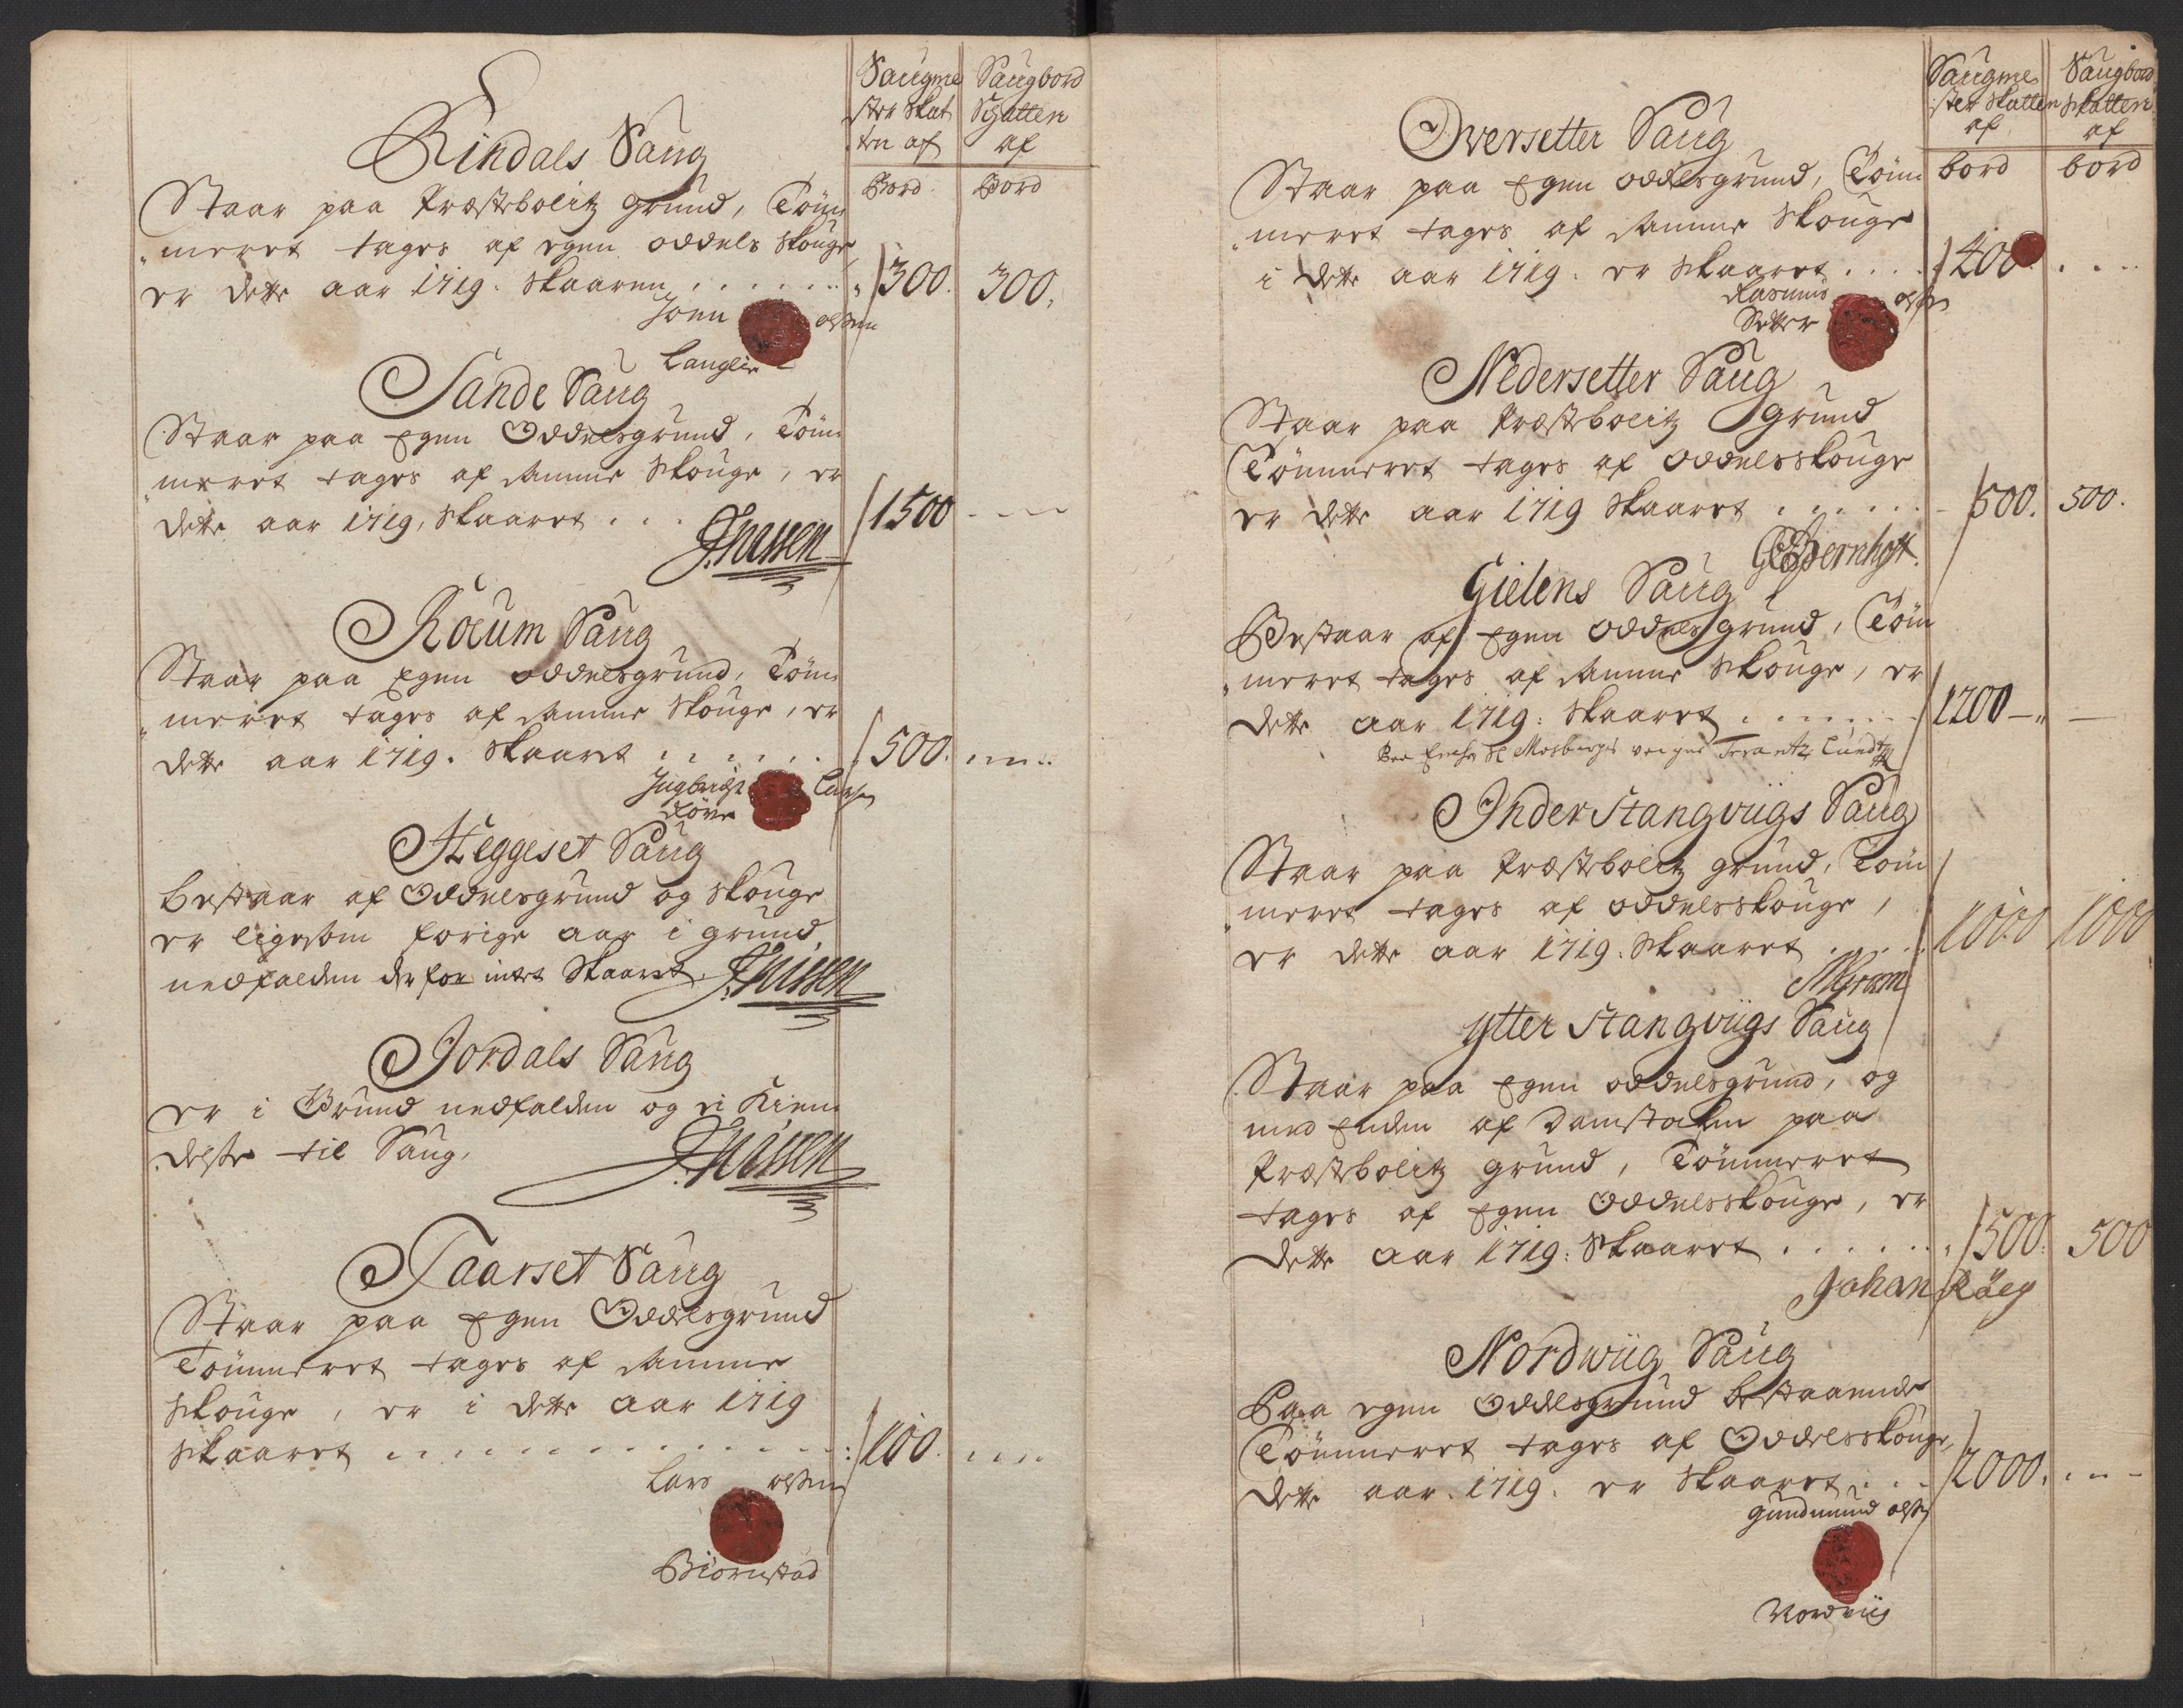 Saugme Saugbord
ster Skat Skatten
ten af af
Bord Bord
Rindals Saug
Staar paa Præstebolitz grund, Töm
meret tages af egen oddels skouge
er dette aar 1719. skaaren . . . . . . 300. 300.
Joen olsen
Langlie
Sande Saug
Staar paa Egen Oddelsgrund, Töm
meret tages af samme Skouge, er
dette aar 1719, skaaret . . . 1500 - - -
J:Nissen
Roeum Saug
Staar paa Egen oddelsgrund, Töm
meret tages af samme Skouge, er
dette aar 1719. skaaret . . . . . . 500. . . . .
Ingbrigt Larsen
Röen
Heggeset Saug
bestaar af Oddelsgrund og skouge
er ligesom forige aar i grund
nedfalden derfor intet Skaaret.
J:Nissen
Jordals Saug
er i Grund nedfalden og ei Kien
delse til Saug,
J:Nissen
Taarset Saug
Staar paa Egen Oddelsgrund
Tömmeret tages af samme
skouge, er i dette aar 1719
skaaret . . . . . . . . . . . . 100. . . . .
Lars olsen
Biörnstad
Saugme Saugbord
ster skatten skatten
af af
bord bord
Oversetter Saug
Staar paa Egen oddelsgrund, Töm
meret tages af samme Skouge
i dette aar 1719. er skaaret . . . . 400. . . . .
Rasmus olsen
Setter
Nedersetter Saug
Staar paa Præstebolitz grund
Tömmeret tages af oddelsskouge
er dette aar 1719 skaaret . . . . . . 500. 500.
Bernhoft.
Gielens Saug
Bestaar af Egen oddelsgrund, Töm
meret tages af samme Skouge, er
dette aar 1719. skaaret . . . . . . . 1200 - „ -
Mosbergs vegne Frantz Lund
Inder Stangviigs Saug
Staar paa Præstebolitz grund, Töm
meret tages af oddelsskouge,
er dette aar 1719. skaaret . . . . . 1000 1000
Gram
Ytter Stangviigs Saug
Staar paa Egen oddelsgrund, og
med Enden af Damstoken paa
Præstebolitz grund, Tömmeret
tages af Egen Oddelsskouge, er
dette aar 1719. skaaret . . . . . . . 500. 500
Johan Röeg
Nordwiig Saug
Paa egen Oddelsgrund bestaaende
Tömmeret tages af Oddelsskouge,
dette aar. 1719. er skaaret . . . 2000. . . . -
Gundmund olsen
Nordviig